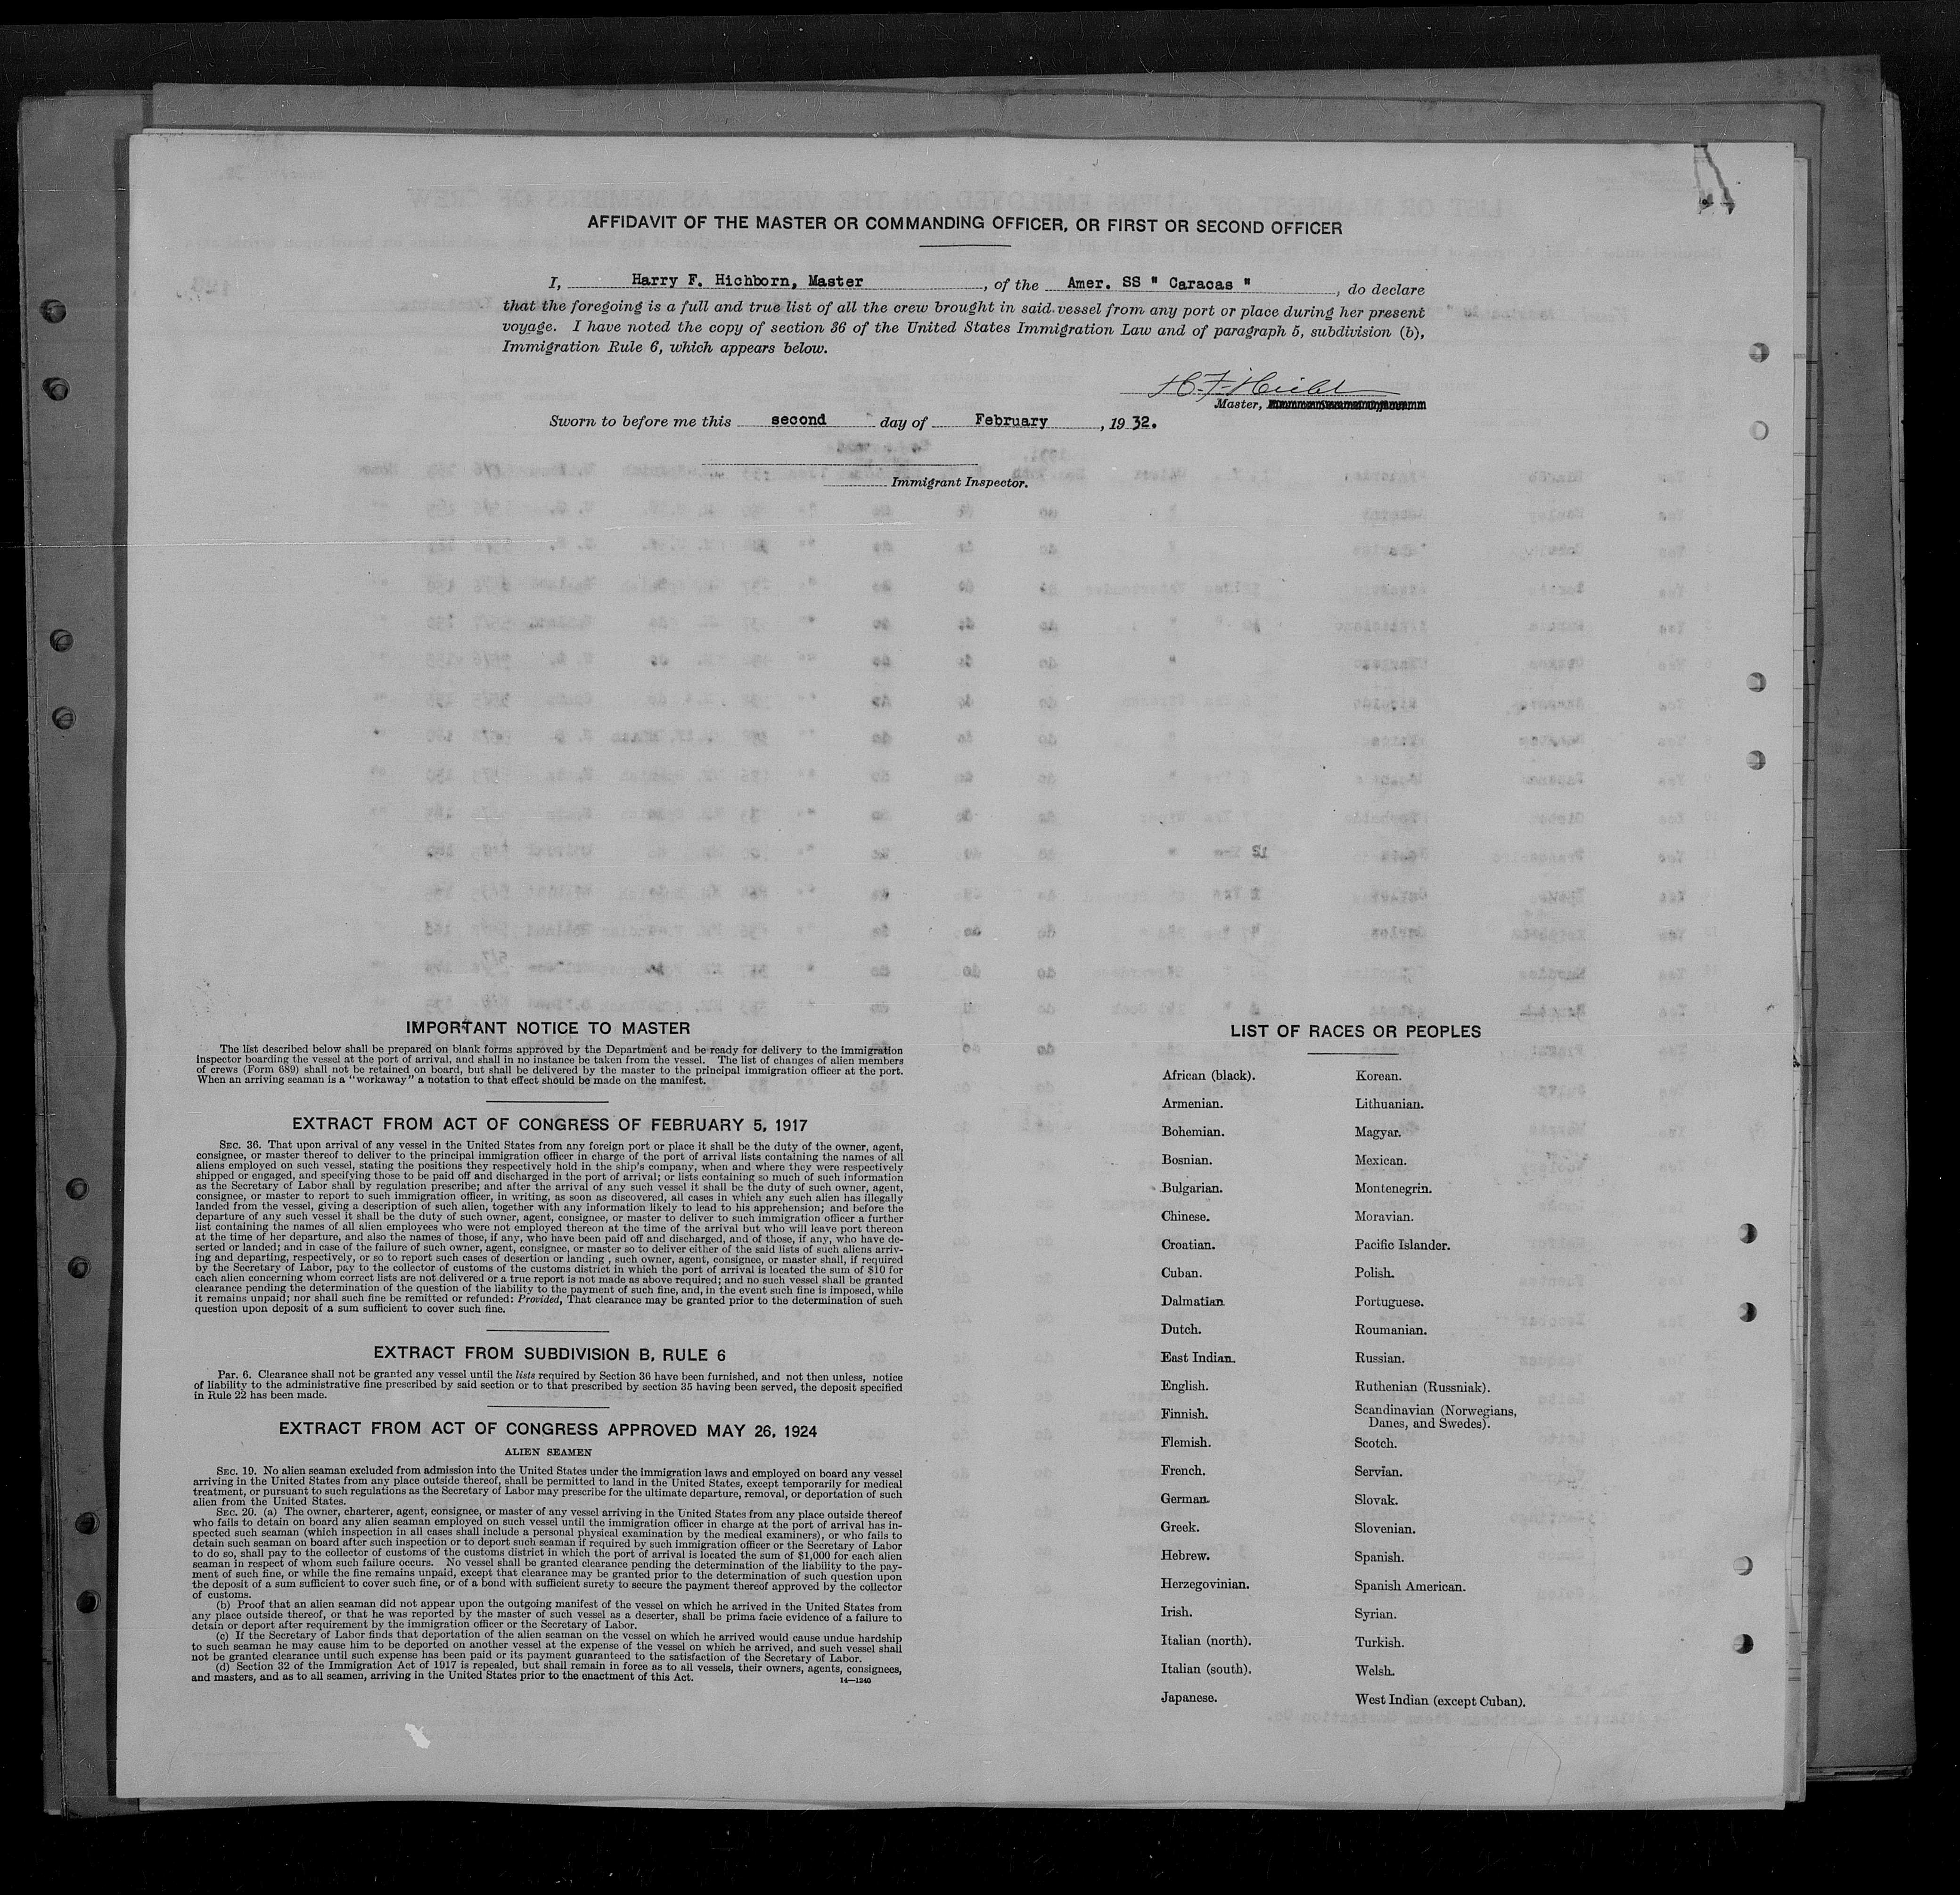 AFFIDAVIT OF THE MASTER OR COMMANDING OFFICER, OR FIRST OR SECOND OFFICER
I, Harry F. Hichborn, Master, of the Amer. SS " Caracas ", do declare
that the foregoing is a full and true list of all the crew brought in said vessel from any port or place during her present
voyage. I have noted the copy of section 36 of the United States Immigration Law and of paragraph 5, subdivision (b),
Immigration Rule 6, which appears below.
Master,
Sworn to before me this second day of February, 1932.
Immigrant Inspector.
IMPORTANT NOTICE TO MASTER
The list described below shall be prepared on blank forms approved by the Department and be ready for delivery to the immigration
inspector boarding the vessel at the port of arrival, and shall in no instance be taken from the vessel. The list of changes of alien members
of crews (Form 689) shall not be retained on board, but shall be delivered by the master to the principal immigration officer at the port.
When an arriving seaman is a "workaway" a notation to that effect should be made on the manifest.
EXTRACT FROM ACT OF CONGRESS OF FEBRUARY 5, 1917
SEC. 36. That upon arrival of any vessel in the United States from any foreign port or place it shall be the duty of the owner, agent,
consignee, or master thereof to deliver to the principal immigration officer in charge of the port of arrival lists containing the names of all
aliens employed on such vessel, stating the positions they respectively hold in the ship's company, when and where they were respectively
shipped or engaged, and specifying those to be paid off and discharged in the port of arrival; or lists containing so much of such information
as the Secretary of Labor shall by regulation prescribe; and after the arrival of any such vessel it shall be the duty of such owner, agent,
consignee, or master to report to such immigration officer, in writing, as soon as discovered, all cases in which any such alien has illegally
landed from the vessel, giving a description of such alien, together with any information likely to lead to his apprehension; and before the
departure of any such vessel it shall be the duty of such owner, agent, consignee, or master to deliver to such immigration officer a further
list containing the names of all alien employees who were not employed thereon at the time of the arrival but who will leave port thereon
at the time of her departure, and also the names of those, if any, who have been paid off and discharged, and of those, if any, who have de-
serted or landed; and in case of the failure of such owner, agent, consignee, or master so to deliver either of the said lists of such aliens arriv-
ing and departing, respectively, or so to report such cases of desertion or landing , such owner, agent, consignee, or master shall, if required
by the Secretary of Labor, pay to the collector of customs of the customs district in which the port of arrival is located the sum of $10 for
each alien concerning whom correct lists are not delivered or a true report is not made as above required; and no such vessel shall be granted
clearance pending the determination of the question of the liability to the payment of such fine, and, in the event such fine is imposed, while
it remains unpaid; nor shall such fine be remitted or refunded: Provided, That clearance may be granted prior to the determination of such
question upon deposit of a sum sufficient to cover such fine.
EXTRACT FROM SUBDIVISION B, RULE 6
Par. 6. Clearance shall not be granted any vessel until the lists required by Section 36 have been furnished, and not then unless, notice
of liability to the administrative fine prescribed by said section or to that prescribed by section 35 having been served, the deposit specified
in Rule 22 has been made.
EXTRACT FROM ACT OF CONGRESS APPROVED MAY 26, 1924
ALIEN SEAMEN
SEC. 19. No alien seaman excluded from admission into the United States under the immigration laws and employed on board any vessel
arriving in the United States from any place outside thereof, shall be permitted to land in the United States, except temporarily for medical
treatment, or pursuant to such regulations as the Secretary of Labor may prescribe for the ultimate departure, removal, or deportation of such
alien from the United States.
SEC. 20. (a) The owner, charterer, agent, consignee, or master of any vessel arriving in the United States from any place outside thereof
who fails to detain on board any alien seaman employed on such vessel until the immigration officer in charge at the port of arrival has in-
spected such seaman (which inspection in all cases shall include a personal physical examination by the medical examiners), or who fails to
detain such seaman on board after such inspection or to deport such seaman if required by such immigration officer or the Secretary of Labor
to do so, shall pay to the collector of customs of the customs district in which the port of arrival is located the sum of $1,000 for each alien
seaman in respect of whom such failure occurs. No vessel shall be granted clearance pending the determination of the liability to the pay-
ment of such fine, or while the fine remains unpaid, except that clearance may be granted prior to the determination of such question upon
the deposit of a sum sufficient to cover such fine, or of a bond with sufficient surety to secure the payment thereof approved by the collector
of customs.
(b) Proof that an alien seaman did not appear upon the outgoing manifest of the vessel on which he arrived in the United States from
any place outside thereof, or that he was reported by the master of such vessel as a deserter, shall be prima facie evidence of a failure to
detain or deport after requirement by the immigration officer or the Secretary of Labor.
(c) If the Secretary of Labor finds that deportation of the alien seaman on the vessel on which he arrived would cause undue hardship
to such seaman he may cause him to be deported on another vessel at the expense of the vessel on which he arrived, and such vessel shall
not be granted clearance until such expense has been paid or its payment guaranteed to the satisfaction of the Secretary of Labor.
(d) Section 32 of the Immigration Act of 1917 is repealed, but shall remain in force as to all vessels, their owners, agents, consignees,
and masters, and as to all seamen, arriving in the United States prior to the enactment of this Act.
14—1240
LIST OF RACES OR PEOPLES
African (black).
Armenian.
Bohemian.
Bosnian.
Bulgarian.
Chinese.
Croatian.
Cuban.
Dalmatian
Dutch.
East Indian.
English.
Finnish.
Flemish.
French.
German.
Greek.
Hebrew.
Herzegovinian.
Irish.
Italian (north).
Italian (south).
Japanese.
Korean.
Lithuanian.
Magyar.
Mexican.
Montenegrin.
Moravian.
Pacific Islander.
Polish.
Portuguese.
Roumanian.
Russian.
Ruthenian (Russniak).
Scandinavian (Norwegians,
Danes, and Swedes).
Scotch.
Servian.
Slovak.
Slovenian.
Spanish.
Spanish American.
Syrian.
Turkish.
Welsh.
West Indian (except Cuban).